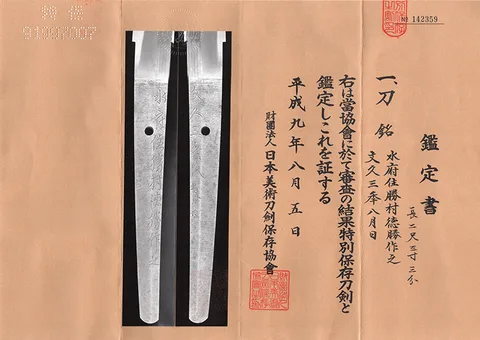 鑑定書
一、刀 銘 水府住勝村徳勝作之
文久三年八月日
長二尺三寸三分
右は當協會に於て審査の結果特別保存刀剣と
鑑定しこれを証する
平成九年八月五日
財團法人日本美術刀剣保存協會
№ 142359